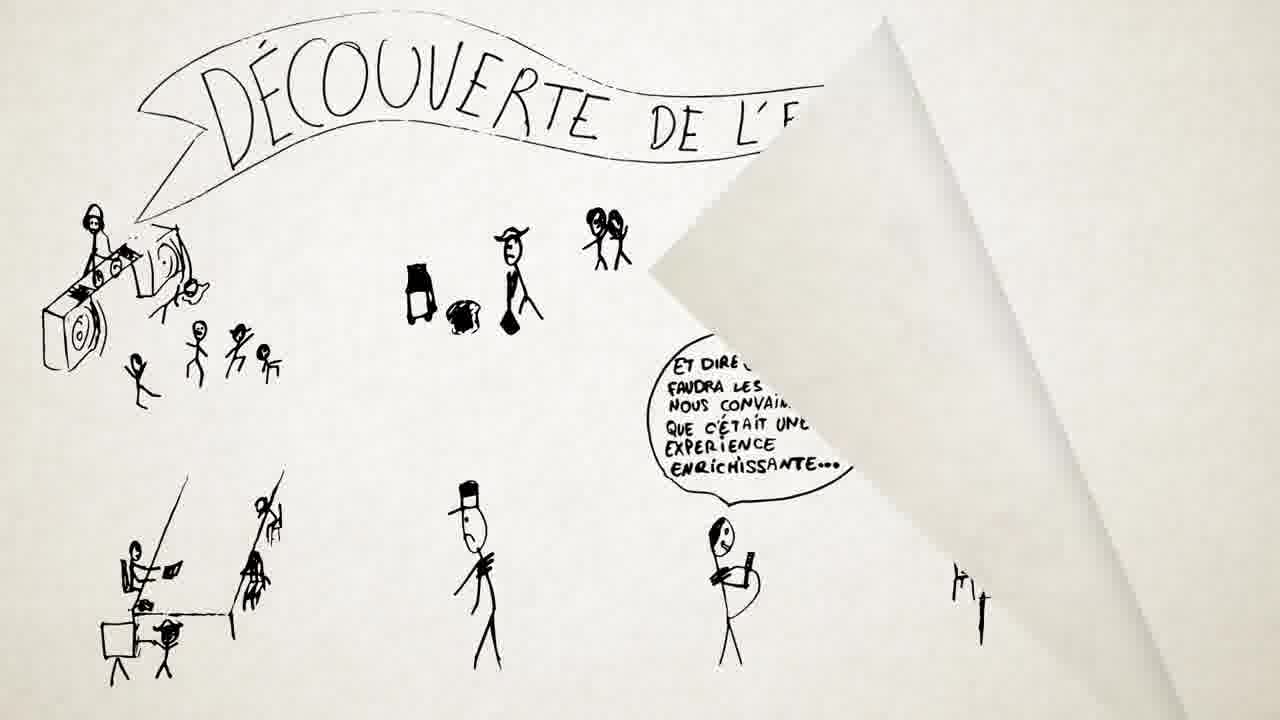 DÉCOUVERTE DE L'E
ET DIRE
FAUDRA LES
NOUS CONVAIN
QUE C'ÉTAIT UNE
EXPERIENCE
ENRICHISSANTE...